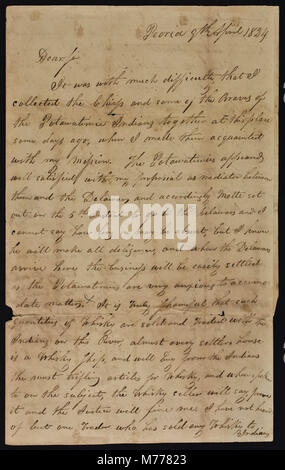 Peoria 9th April 1834
Dear Sir
It was with much difficulty that I
collected the Chiefs and some of the Braves of
the Potawatimie Indians together at this place
some days ago, when I made them acquainted
with my Mission. The Potawatimies appeared
well satisfied with my proposal as mediator between
them and the Delawares and accordingly Mette set
out on the 5th to go to the Delawares and I
cannot say how long he may be absent, but I know
he will make all diligence, and when the Delawares
arrive here the business will be easily settled
as the Potawatimies are very anxious to accommo
date matters. It is truly shameful that such
quantities of Whisky are sold and traded with the
Indians on this River, almost every settlers house
is a Whisky Shop, and will buy from the Indians
the most trifling articles for Whisky and when spoke
to on the subject, the Whisky seller will say prove
it and the Justice will fine me. I have not heard
of but one Trader who has sold any Whisky to
Indians
alamy
M77823